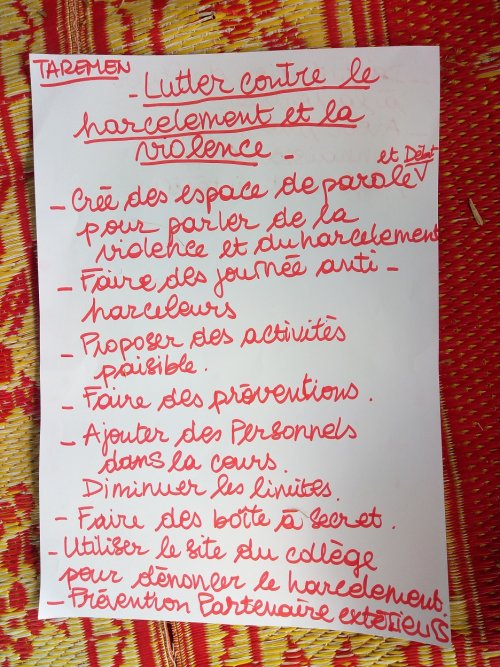 TAREMEN
- Lutter contre le
harcelement et la
violence -
et Débat
- Créé des espace de parole
pour parler de la
violence et du harcelement
- Faire des journée anti -
harceleurs
- Proposer des activités
paisible.
- Faire des préventions.
- Ajouter des Personnels
dans la cours.
Diminuer les limites.
- Faire des boîte à secret.
- Utiliser le site du collège
pour dénoncer le harcelement.
- Prévention Partenaire extérieurs